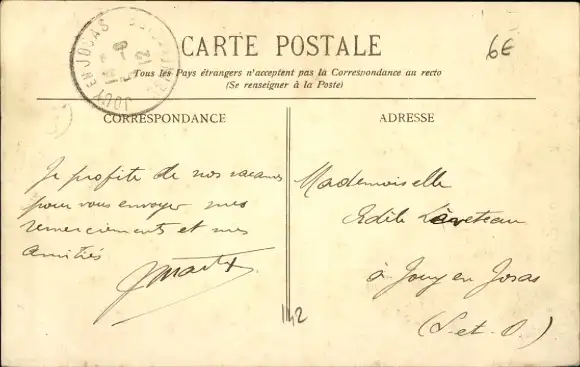 CARTE POSTALE
6€
Tous les Pays étrangers n'acceptent pas la Correspondance au recto
(Se renseigner à la Poste)
JOUY EN JOSAS
CORRESPONDANCE
Je profite de nos vacances
pour vous envoyer mes
remerciements et mes
amitiés
ADRESSE
Mademoiselle
à Jouy en Josas
(S. et. O.)
142